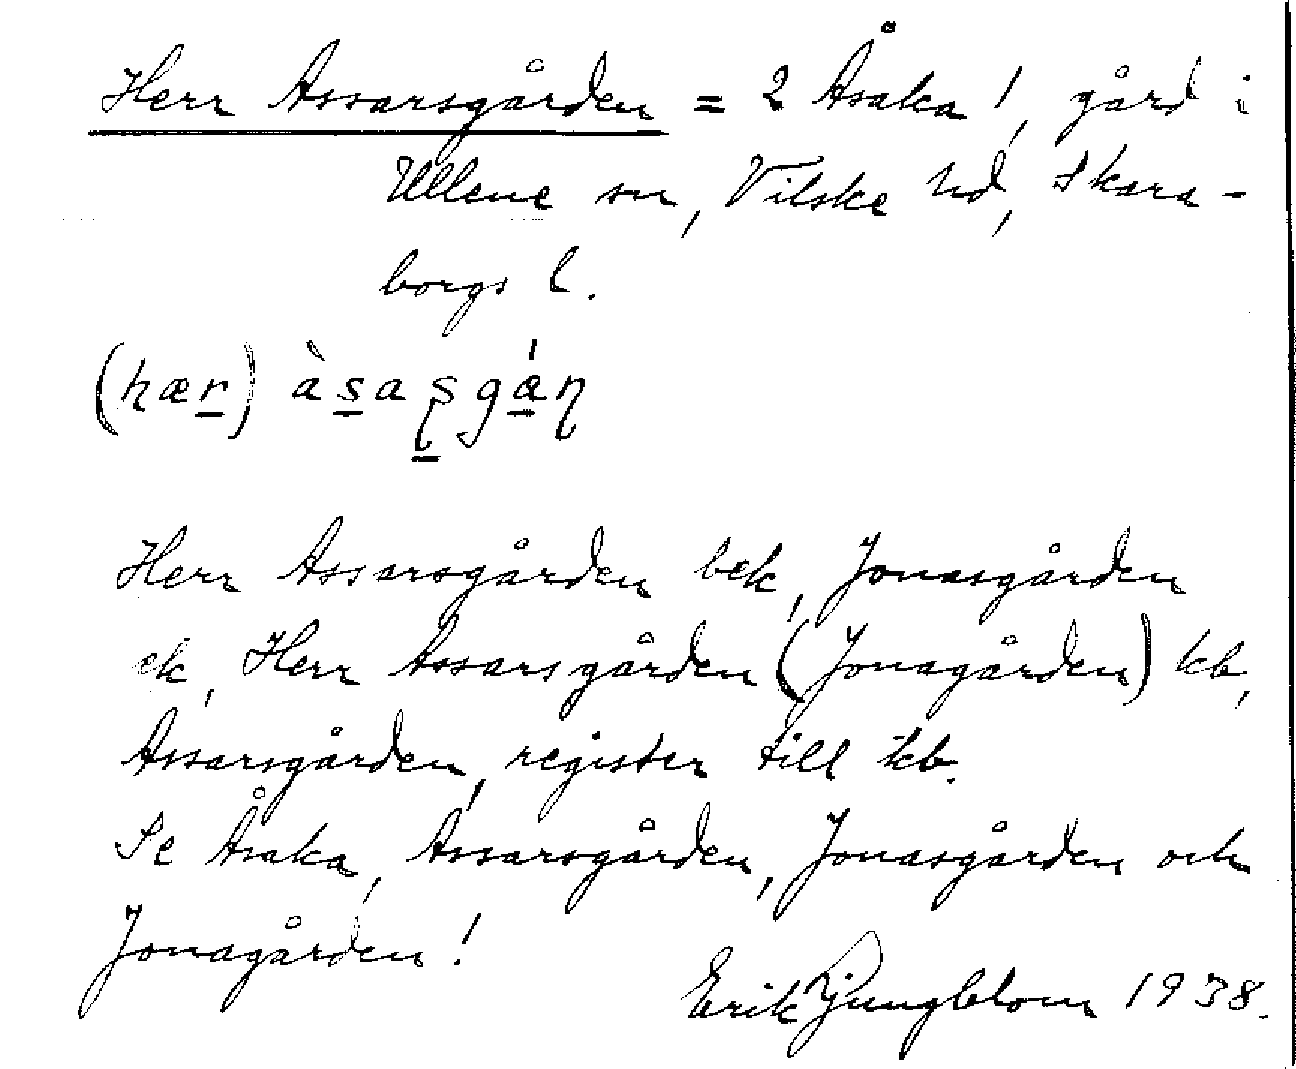 Herr Assarsgården = 2 Åsaka 1, gård i
Ullene sn, Vilske hd, Skara-
borgs l.
(hær) àsaʂgáɳ
Herr Assarsgården bek, Jonasgården
ek, Herr Assarsgården (Jonagården) kb,
Assarsgården, register till kb.
Se Åsaka, Assarsgården, Jonasgården och
Jonagården!
Erik Ljungblom 1938.